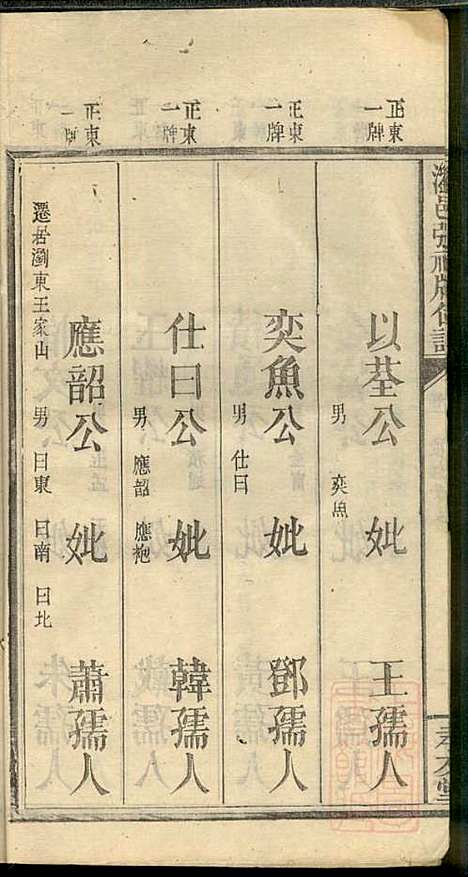 正東
一牌
以荃公 妣 王孺人
男 奕魚
正東
一牌
奕魚公 妣 鄧孺人
男 仕曰
正東
一牌
仕曰公 妣 韓孺人
男 應韶 應袍
正東
一牌
應韶公 妣 蕭孺人
男 曰東 曰南 曰北
遷居瀏東王家山